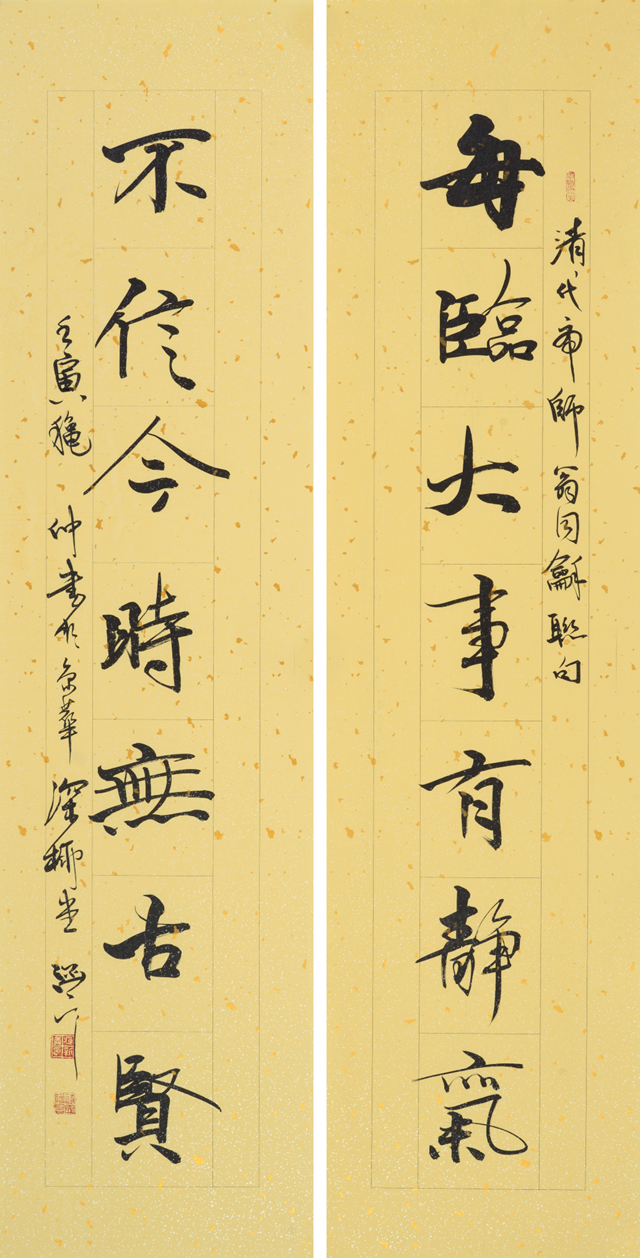 清代帝師翁同龢聯句
每臨大事有静氣
不信今時無古賢
壬寅穐仲書於京華深柳堂